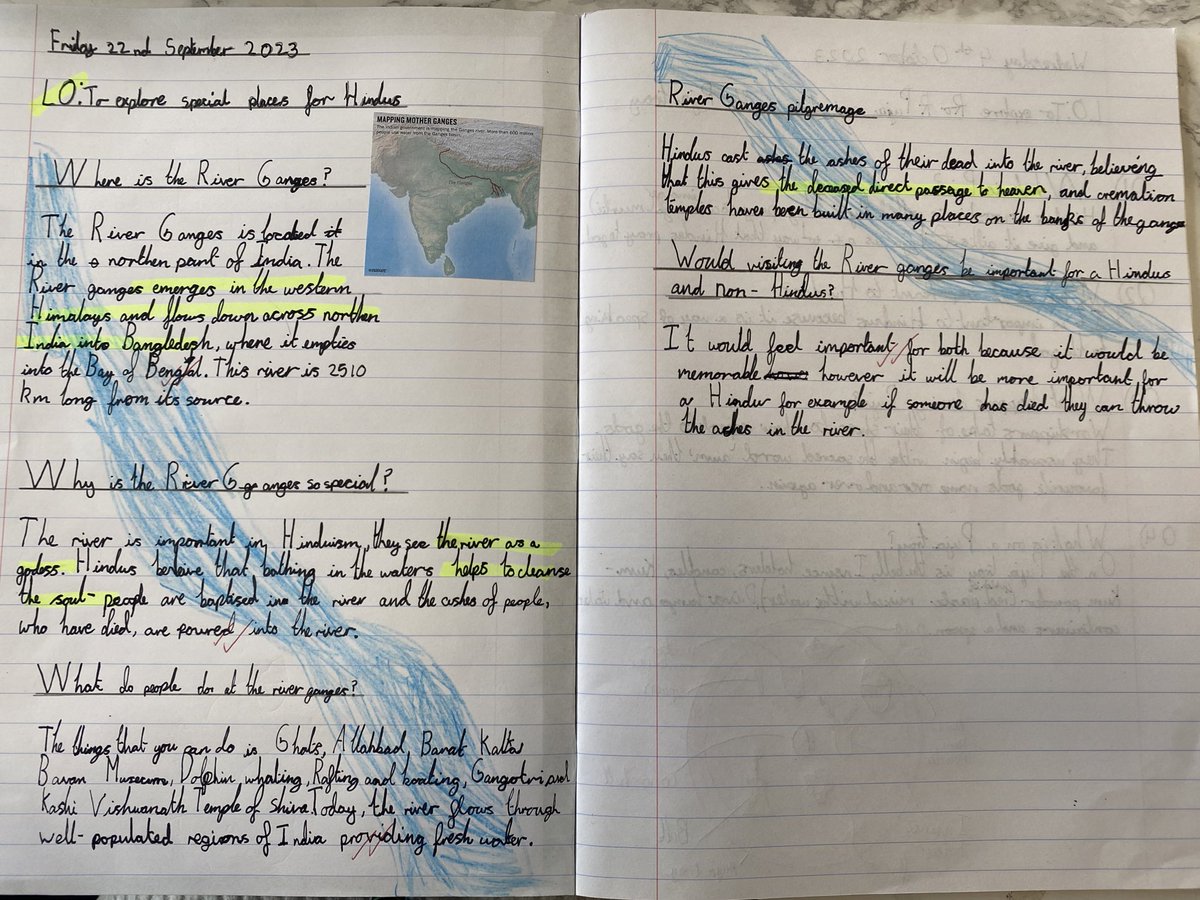 Friday 22nd September 2023
LO: To explore special places for Hindus
MAPPING MOTHER GANGES
The Indian government is mapping the Ganges river. More than 600 million
people use water from the Ganges basin.
The Ganges
Where is the River Ganges?
The River Ganges is located it
in the northen part of India. The
River ganges emerges in the western
Himalays and flows down across northen
India into Bangledesh, where it empties
into the Bay of Bengal. This river is 2510
Km long from its source.
Why is the River Ganges so special?
The river is important in Hinduism, they see the river as a
godess. Hindus beleive that bathing in the waters helps to cleanse
the soul- people are baptised in the river and the ashes of people,
who have died, are poured into the river.
What do people do at the river ganges?
The things that you can do is Ghats, Allahbad, Barat Kalta
Bavan Museum, Dolphin, whating, Rafting and boating, Gangotri and
Kashi Vishwanath Temple of Shiva. Today, the river flows through
well-populated regions of India providing fresh water.
River Ganges pilgremage
Hindus cast ashes the ashes of their dead into the river, believing
that this gives the deceased direct passage to heaven, and cremation
temples haver been built in many places on the banks of the gange
Would visiting the River ganges be important for a Hindus
and non-Hindus?
It would feel important for both because it would be
memorable however it will be more important for
a Hindu for example if someone has died they can throw
the ashes in the river.